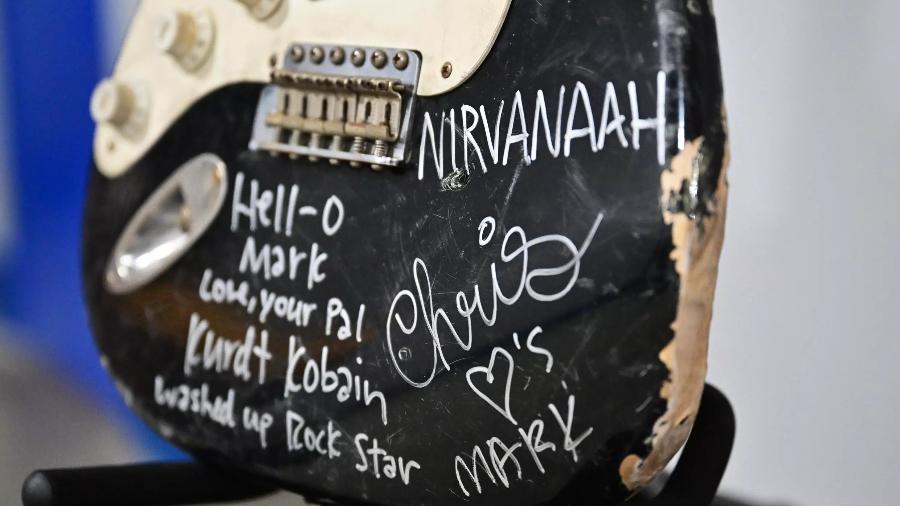 NIRVANAAH
Hell-O
Mark
Love, your Pal
Kurdt Kobain
washed up Rock Star
Chris
♡'s
MARK!